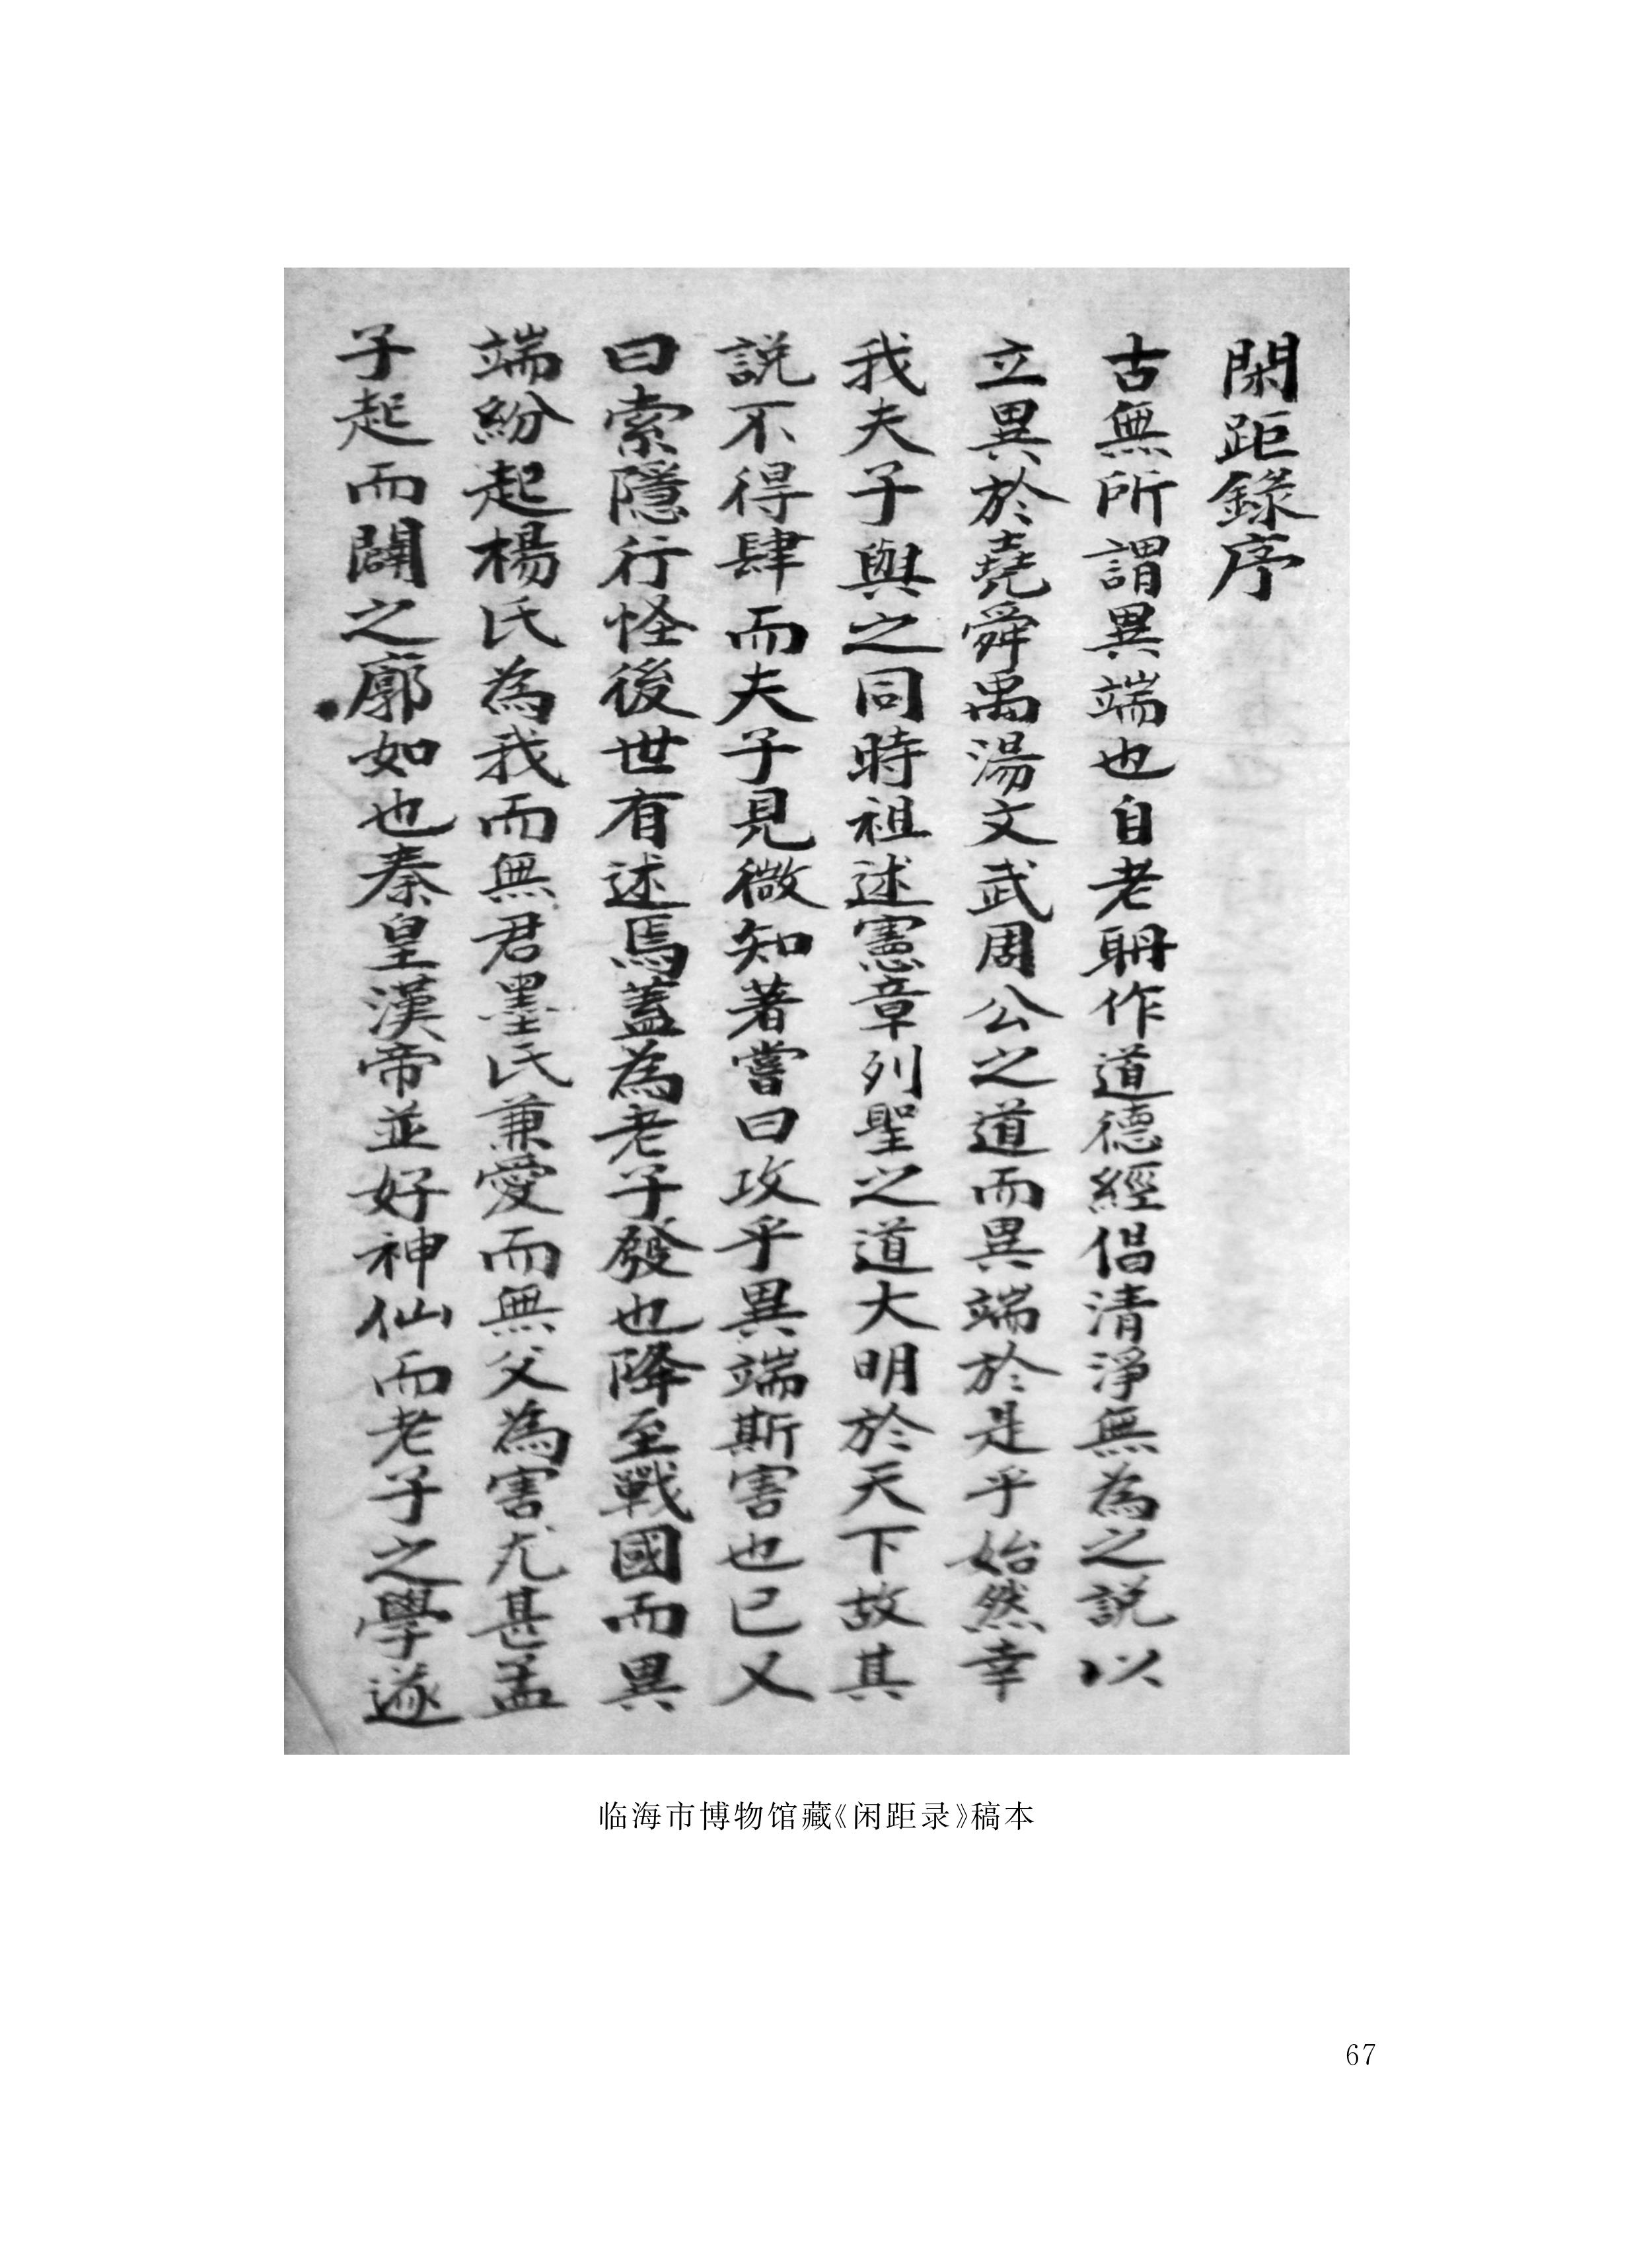 閑距錄序
古無所謂異端也自老聃作道德經倡清淨無為之說以
立異於堯舜禹湯文武周公之道而異端於是乎始然幸
我夫子與之同時祖述憲章列聖之道大明於天下故其
說不得肆而夫子見微知著嘗曰攻乎異端斯害也已又
曰索隱行怪後世有述焉蓋為老子發也降至戰國而異
端紛起楊氏為我而無君墨氏兼愛而無父為害尤甚孟
子起而闢之廓如也秦皇漢帝並好神仙而老子之學遂
临海市博物馆藏《闲距录》稿本
67